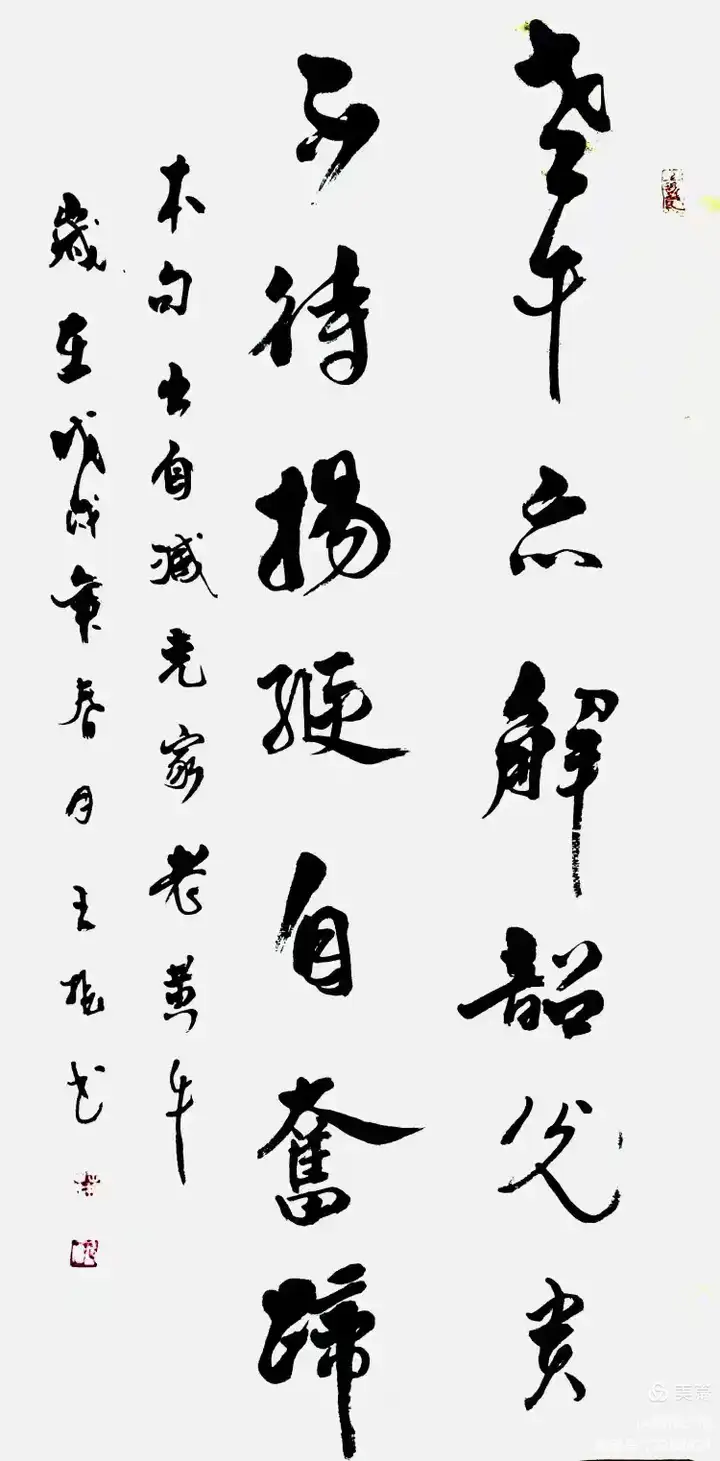 老牛亦解韶光贵
不待揚鞭自奮蹄
本句出自臧克家老黄牛
歲在戊戌年春月王书
美篇